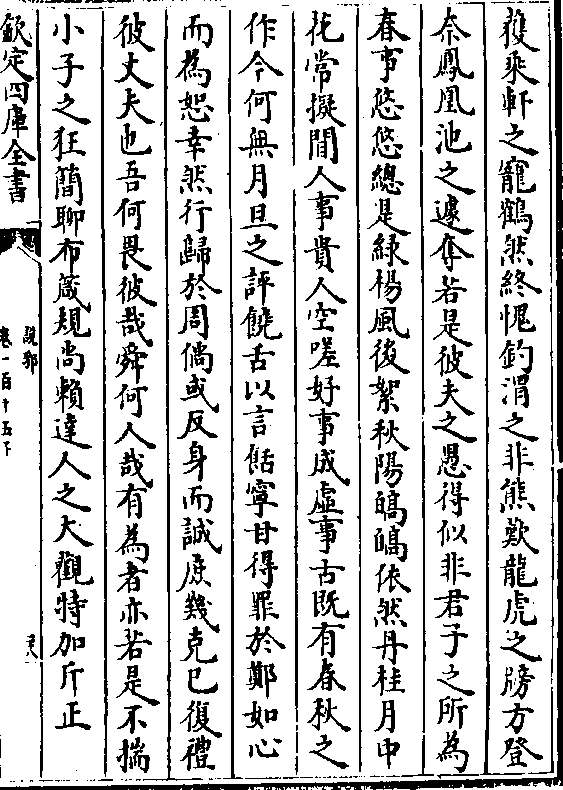 獲乘軒之寵鶴然終愧釣渭之非熊歎龍虎之牓方登
奈鳳凰池之遽奪若是彼夫之愚得似非君子之所為
春事悠悠總是綠楊風後絮秋陽皜皜依然丹桂月中
花常擬閒人事貴人空嗟好事成虛事古既有春秋之
作今何無月旦之評饒舌以言餂寧甘得罪於鄭如心
而為恕幸然行歸於周倘或反身而誠庶幾克已復禮
彼丈夫也吾何畏彼哉舜何人哉有為者亦若是不揣
小子之狂簡聊布箴規尚賴達人之大觀特加斤正
欽定四庫全書
說郛
卷一百十五下